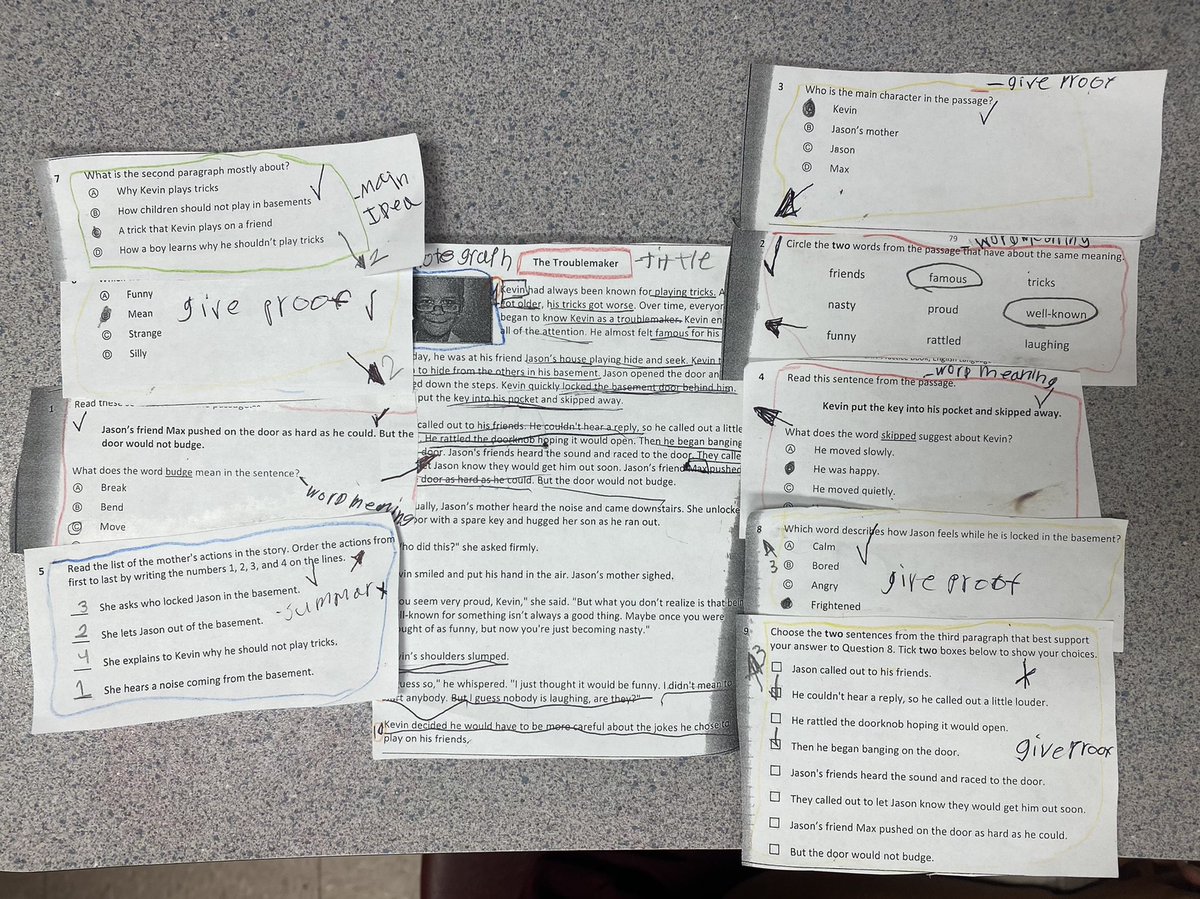 7 What is the second paragraph mostly about?
Ⓐ Why Kevin plays tricks
Ⓑ How children should not play in basements
A trick that Kevin plays on a friend
Ⓓ How a boy learns why he shouldn't play tricks
-main
Idea
2
Ⓐ Funny
Mean
Ⓒ Strange
Ⓓ Silly
give proof
2
1 Read these
Jason's friend Max pushed on the door as hard as he could. But the
door would not budge.
What does the word budge mean in the sentence?
-word meaning
Ⓐ Break
Ⓑ Bend
Ⓒ Move
5 Read the list of the mother's actions in the story. Order the actions from
first to last by writing the numbers 1, 2, 3, and 4 on the lines.
3 She asks who locked Jason in the basement.
2 She lets Jason out of the basement.
4 She explains to Kevin why he should not play tricks.
1 She hears a noise coming from the basement.
-Summary
otograph
The Troublemaker
-tittle
Kevin had always been known for playing tricks. A
got older, his tricks got worse. Over time, everyon
began to know Kevin as a troublemaker. Kevin en
all of the attention. He almost felt famous for his
day, he was at his friend Jason's house playing hide and seek. Kevin t
to hide from the others in his basement. Jason opened the door an
ed down the steps. Kevin quickly locked the basement door behind him.
put the key into his pocket and skipped away.
called out to his friends. He couldn't hear a reply, so he called out a little
. He rattled the doorknob hoping it would open. Then he began banging
door. Jason's friends heard the sound and raced to the door. They calle
let Jason know they would get him out soon. Jason's friend Max pushed
door as hard as he could. But the door would not budge.
ually, Jason's mother heard the noise and came downstairs. She unlocke
oor with a spare key and hugged her son as he ran out.
ho did this?" she asked firmly.
vin smiled and put his hand in the air. Jason's mother sighed.
ou seem very proud, Kevin," she said. "But what you don't realize is that bein
ll-known for something isn't always a good thing. Maybe once you were
ught of as funny, but now you're just becoming nasty."
vin's shoulders slumped.
uess so," he whispered. "I just thought it would be funny. I didn't mean to
urt anybody. But I guess nobody is laughing, are they?"
10 Kevin decided he would have to be more careful about the jokes he chose to
play on his friends.
-give proof
3 Who is the main character in the passage?
Kevin
Ⓑ Jason's mother
Ⓒ Jason
Ⓓ Max
79
word meaning
2 Circle the two words from the passage that have about the same meaning.
friends famous tricks
nasty proud well-known
funny rattled laughing
-word meaning
4 Read this sentence from the passage.
Kevin put the key into his pocket and skipped away.
What does the word skipped suggest about Kevin?
Ⓐ He moved slowly.
He was happy.
Ⓒ He moved quietly.
8 Which word describes how Jason feels while he is locked in the basement?
Ⓐ Calm
3 Ⓑ Bored
Ⓒ Angry
Frightened
give proof
9 Choose the two sentences from the third paragraph that best support
your answer to Question 8. Tick two boxes below to show your choices.
3
Jason called out to his friends.
He couldn't hear a reply, so he called out a little louder.
He rattled the doorknob hoping it would open.
Then he began banging on the door.
give proof
Jason's friends heard the sound and raced to the door.
They called out to let Jason know they would get him out soon.
Jason's friend Max pushed on the door as hard as he could.
But the door would not budge.